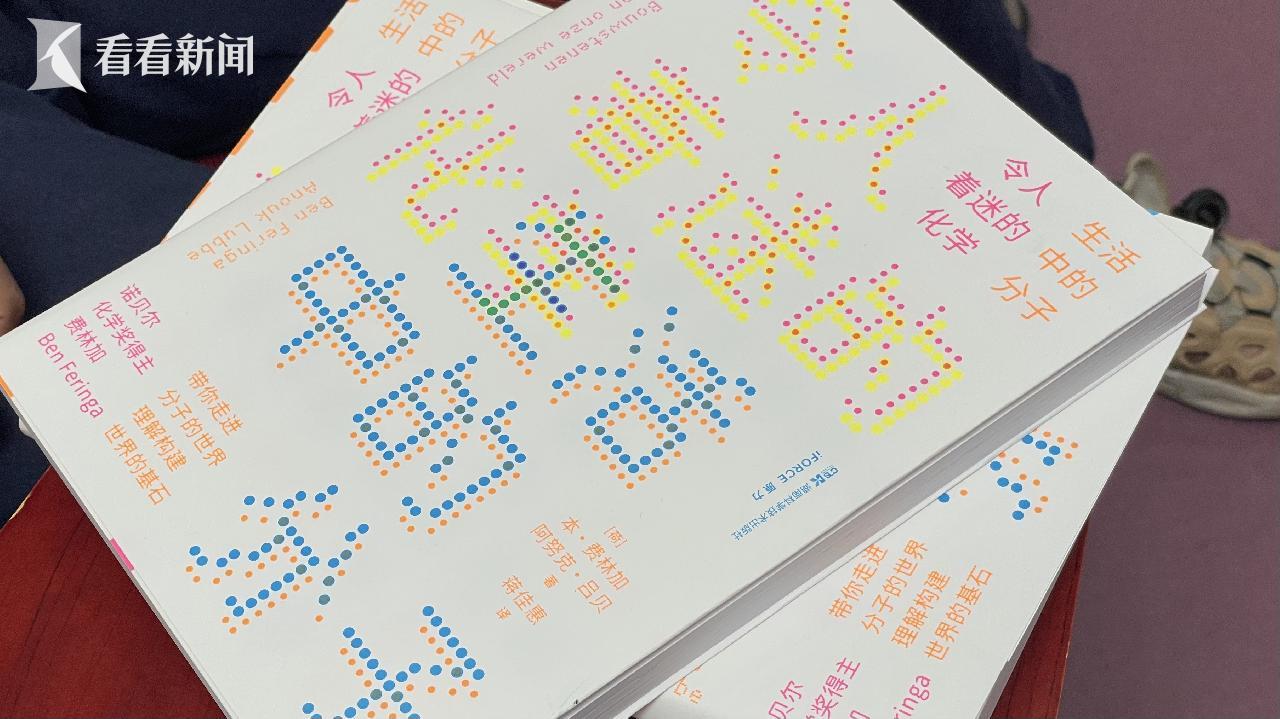 看看新闻
生活
中的
分子
令人
着迷的
Bouwstenen
van onze wereld
令人
着迷的
化学
生活
中的
分子
令人
着迷的
化学
生活
中的
分子
Ben Feringa
Anouk Lubbe
诺贝尔
化学奖得主
费林加
Ben Feringa
带你走进
分子的世界
理解构建
世界的基石
[荷]
本·费林加
阿努克·吕贝
著
蒋佳惠
译
iFORCE 原力
湖南科学技术出版社
带你走进
分子的世界
理解构建
世界的基石
贝尔
学奖得主
ringa